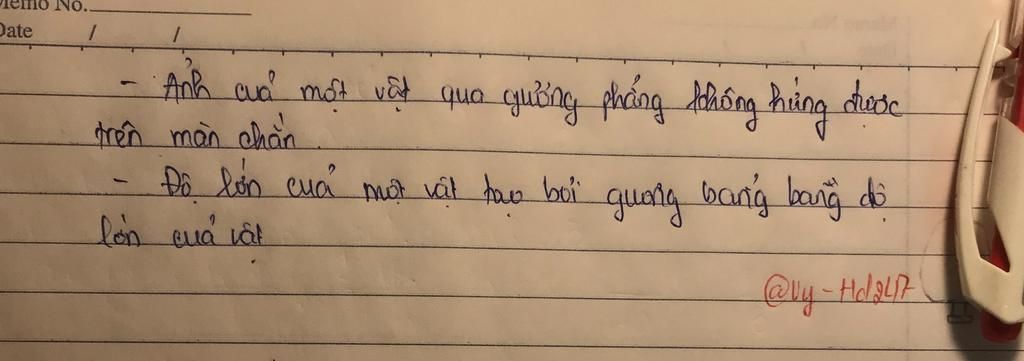 Memo No.
Date / /
- Ảnh cuả một vật qua gường phẳng không hứng được
trên màn chắn.
- Độ lớn cuả một vật tạo bởi guong bảng bằng độ
lớn cuả vật
@Vy-Hd247